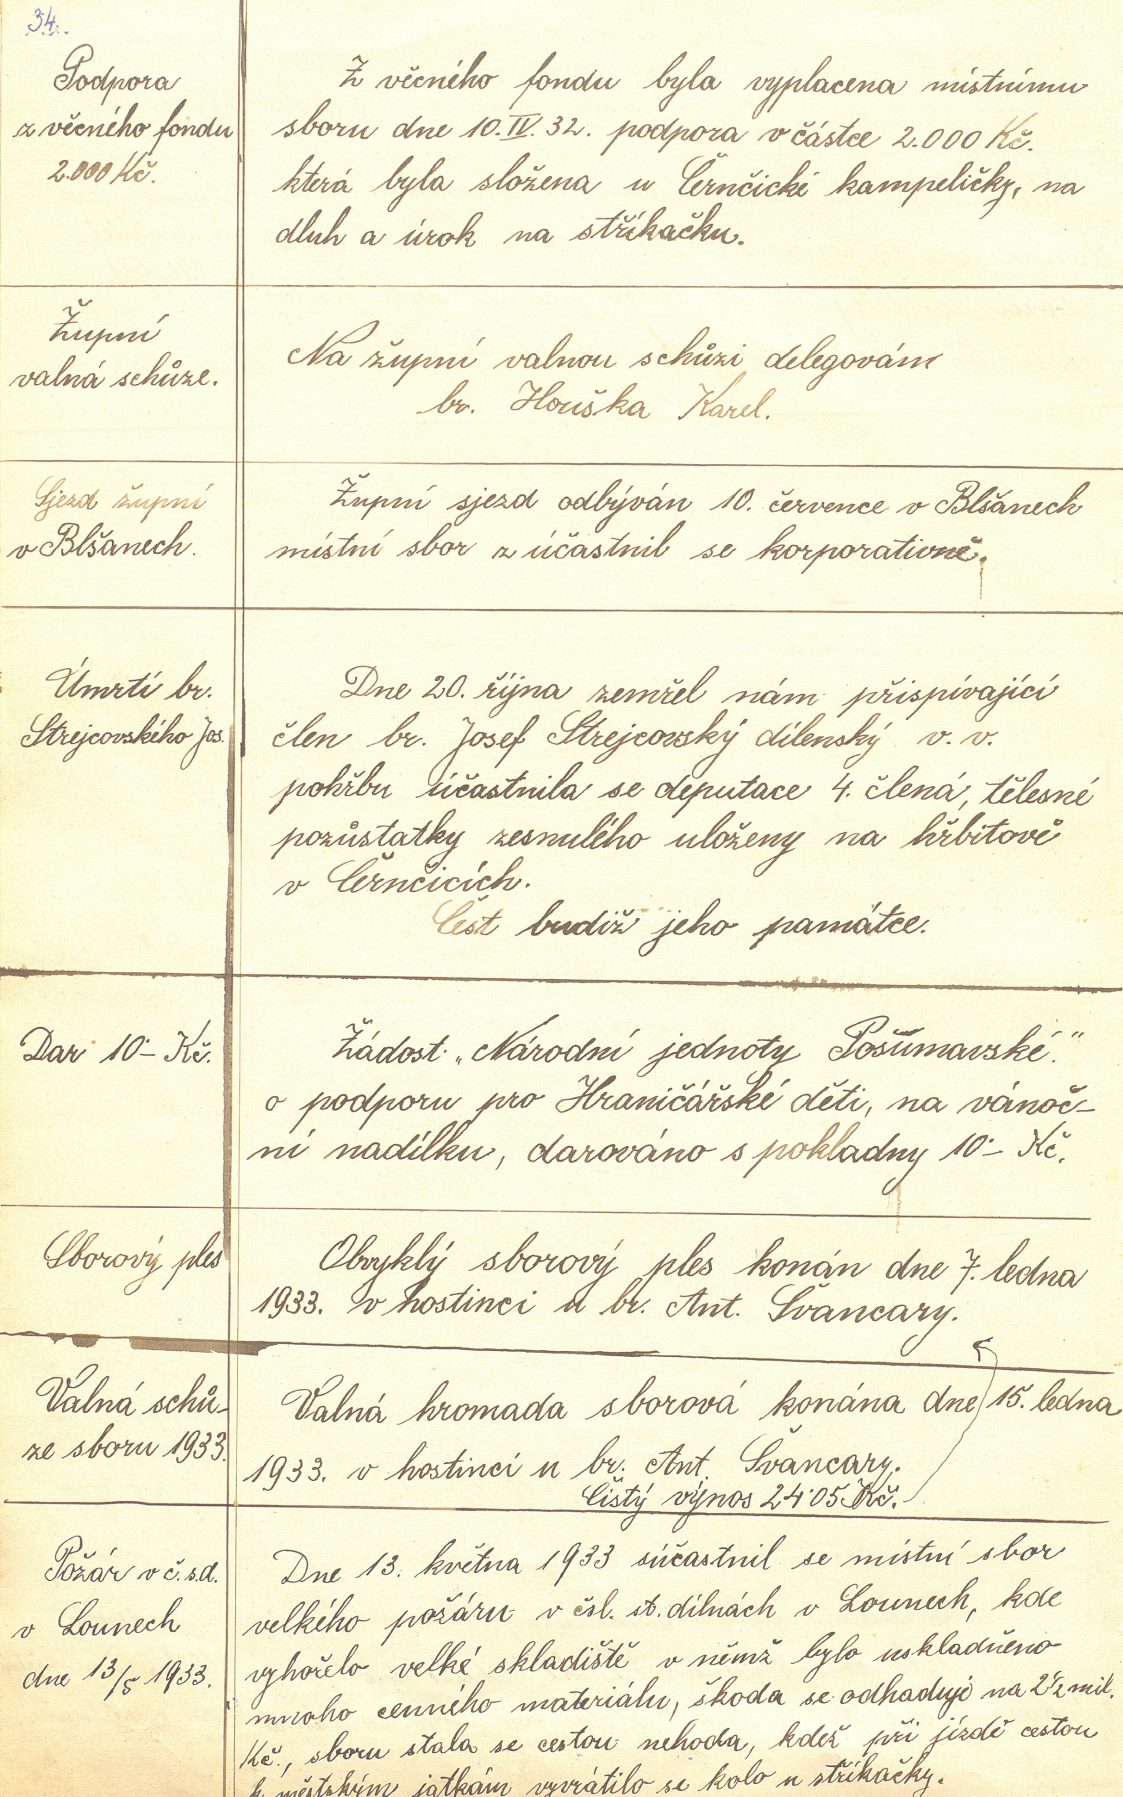 34.
Podpora
z věcného fondu
2.000 Kč.
Z věcného fondu byla vyplacena místnímu
sboru dne 10.IV.32. podpora v částce 2.000 Kč.
která byla složena u Černčické kampeličky, na
dluh a úrok na stříkačku.
Župní
valná schůze.
Na župní valnou schůzi delegován
br. Houška Karel.
Sjezd župní
v Blšanech.
Župní sjezd odbýván 10. července v Blšanech
místní sbor z účastnil se korporativně.
Úmrtí br.
Strejcovského Jos.
Dne 20. října zemřel nám přispívající
člen br. Josef Strejcovský dílenský v. v.
pohřbu účastnila se deputace 4. člená, tělesné
pozůstatky zesnulého uloženy na hřbitově
v Černčicích.
Čest budiž jeho památce.
Dar 10·– Kč.
Žádost „Národní jednoty Pošumavské."
o podporu pro Hraničářské děti, na vánoč-
ní nadílku, darováno s pokladny 10·– Kč.
Sborový ples
Obvyklý sborový ples konán dne 7. ledna
1933. v hostinci u br. Ant. Švancary.
Valná schů-
ze sboru 1933.
Valná hromada sborová konána dne 15. ledna
1933. v hostinci u br. Ant. Švancary.
Čistý výnos 24·05 Kč.
Požár v č.s.d.
v Lounech
dne 13/5 1933.
Dne 13. května 1933 súčastnil se místní sbor
velkého požáru v čsl. st. dílnách v Lounech, kde
vyhořelo velké skladiště v němž bylo uskladněno
mnoho cenného materiálu, škoda se odhaduje na 2½ mil.
Kč., sboru stala se cestou nehoda, kdež při jízdě cestou
k městským jatkám vyvrátilo se kolo u stříkačky.